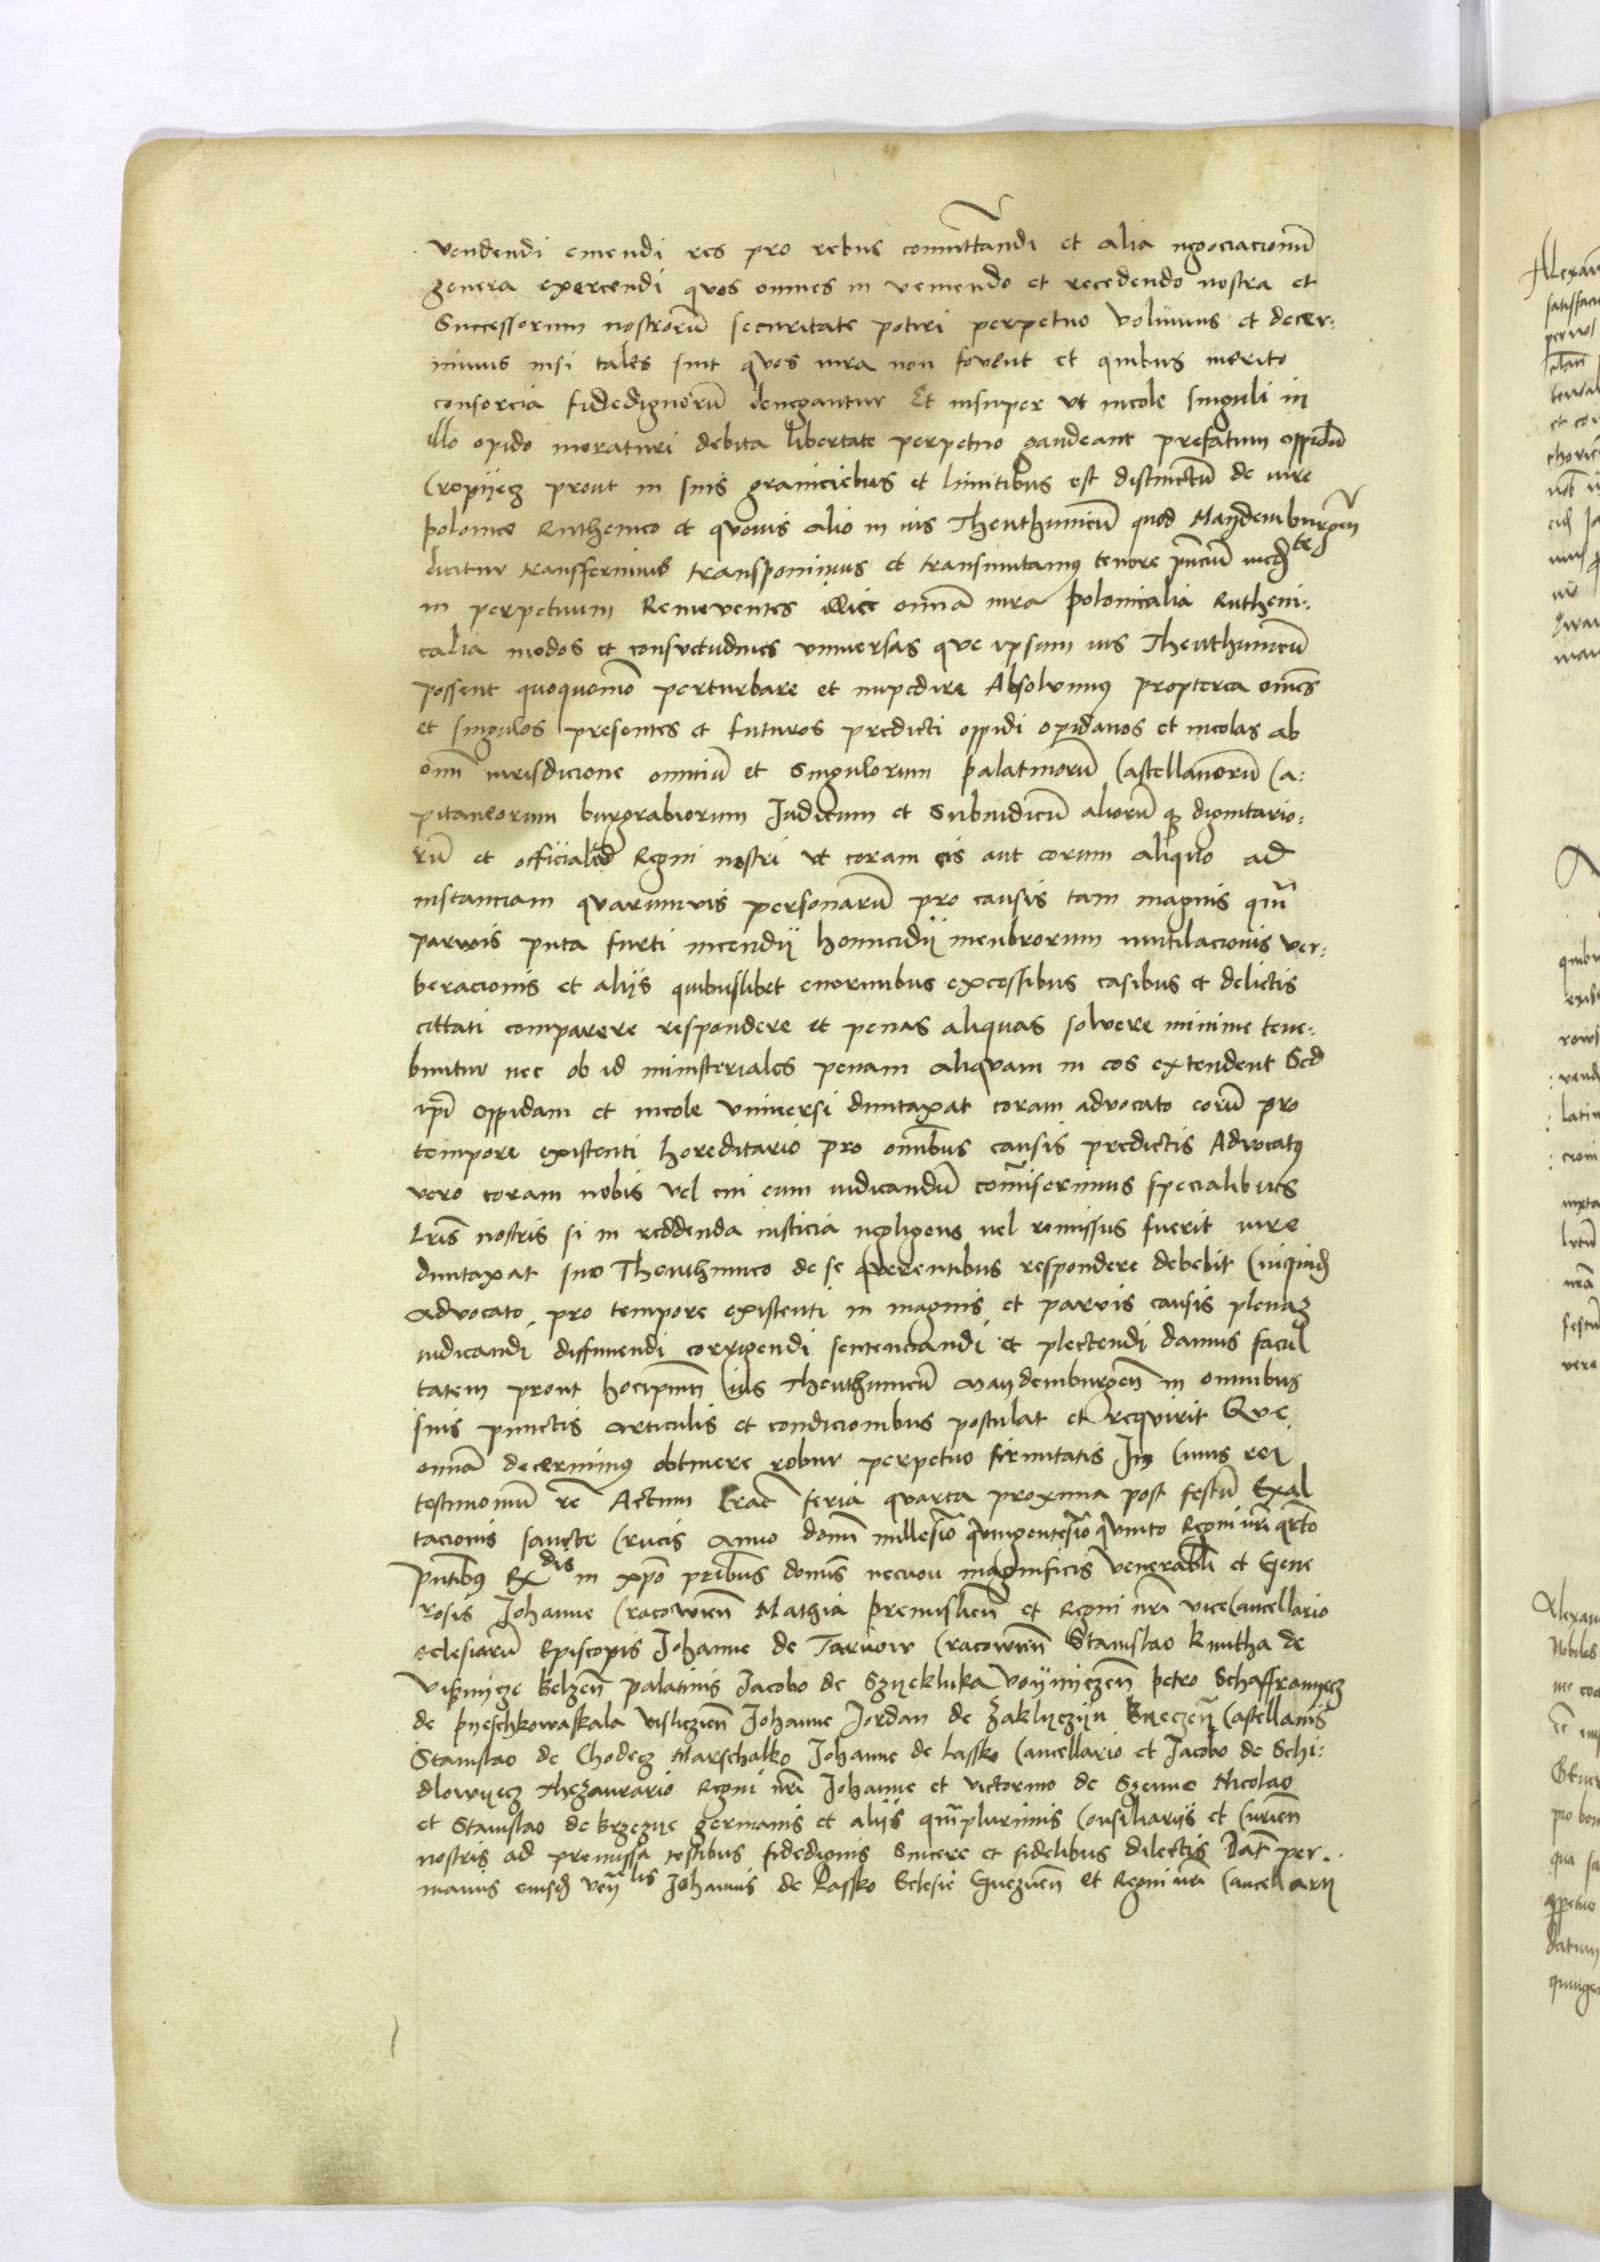 vendendi emendi res pro rebus comuttandi et alia negociacionu͞
genera exercendi quos omnes in veniendo et recedendo nostra et
Successorum nostroru͞ securitate potiri perpetuo volumus et decer:
nimus nisi tales sint quos iura non fovent et quibus merito
consorcia fidedignoru͞ denegantur Et insuper ut incole singuli in
illo opido moraturi debita libertate perpetuo gaudeant prefatum oppidu͞
Cropijecz prout in suis graniciebus et limitibus est distinctu͞ de iure
polonico Ruthenico et quovis alio in ius Theuthunicu͞ quod Maydemburgen͞
dicitur transferimus transponimus et transmutamus tenore pn͞ciu͞ med te
in perpetuum Removentes illic omn͞ia iura polonicalia Rutheni:
calia modos et consuetudines universas que ipsum ius Theuthunicu͞
possent quoquomo͞ perturbare et impedire Absolvimus propterea omn͞es
et singulos presentes et futuros predicti oppidi opidanos et incolas ab
omn͞i iurisdicione omniu͞ et Singulorum palatinoru͞ Castellanoru͞ Ca:
pitaneorum burgrabiorum Iudicum et Subiudicu͞ alioru͞ q3 dignitario:
ru͞ et officialiu͞ Regni nostri ut coram eis aut eorum aliquo ad
instanciam quarumvis personaru͞ pro causis tam magnis qua͞
parvis puta furti incendij homicidij menbrorum mutilacionis ver:
beracionis et alijs quibuslibet enormibus excessibus casibus et delictis
cittati comparere respondere et penas aliquas solvere minime tene:
buntur nec ob id ministeriales penam aliquam in eos extendent Sed
ipi͞ oppidani et incole universi duntaxat coram advocato eoru͞ pro
tempore existenti hereditario pro omn͞ibus causis predictis Advocatus
vero coram nobis vel cui eum iudicandu͞ com͞iserimus specialibus
l͞ris nostris si in reddenda iusticia negligens vel remissus fuerit iure
duntaxat suo Theuthunico de se querentibus respondere debebit Cuiquid
advocato pro tempore existenti in magnis et parvis causis plenaz
iudicandi diffiniendi corrigendi sentenciandi et plectendi damus facul
tatem prout hocipm͞ ius Theuthunicu͞ Maydemburgen͞ in omnibus
suis punctis articulis et condicionibus postulat et requirit Que
omn͞ia decernimus obtinere robur perpetuo firmitatis In Cuius rei
testimoniu͞ re͞ Actum Crac͞ feria quarta proxima post festu͞ Exal
tacionis sancte Crucis Anno domi͞ millesi͞o quingentesi͞o quinto Regni nr͞i qrto
Pntibus Rx dis in xpo͞ prib͞us domi͞s necnon magnificis venerabli͞ et Gene
rosis Johanne Cracovien͞ Mathia premislien͞ et Regni nr͞i viceCancellario
eclesiaru͞ Episcopis Johanne de Tarnow Cracovien͞ Stanislao kmitha de
visznijcze belzen͞ palatinis Jacobo de Szijekluka voijniczen͞ petro Schaffranijecz
de pijeschkowaskala visliczien͞ Johanne Jordan de Zaklijczijn bijeczen͞ Castellanis
Stanislao de Chodecz Marschalko Johanne de Lassko Cancellario et Jacobo de Schi:
dlowijecz thezaurario Regni nr͞i Johanne et victorino de Szenno Nicolao
et Stanislao de brzezije germanis et alijs qua͞plurimis Consiliarijs et Curien͞
nostris ad premissa testibus fidedignis Sincere et fidelibus dilectis Dat͞ per
manus eiusd ven͞ lis Johannis de Lassko Eclesie Gneznen͞ et Regni nr͞i Cancellarij